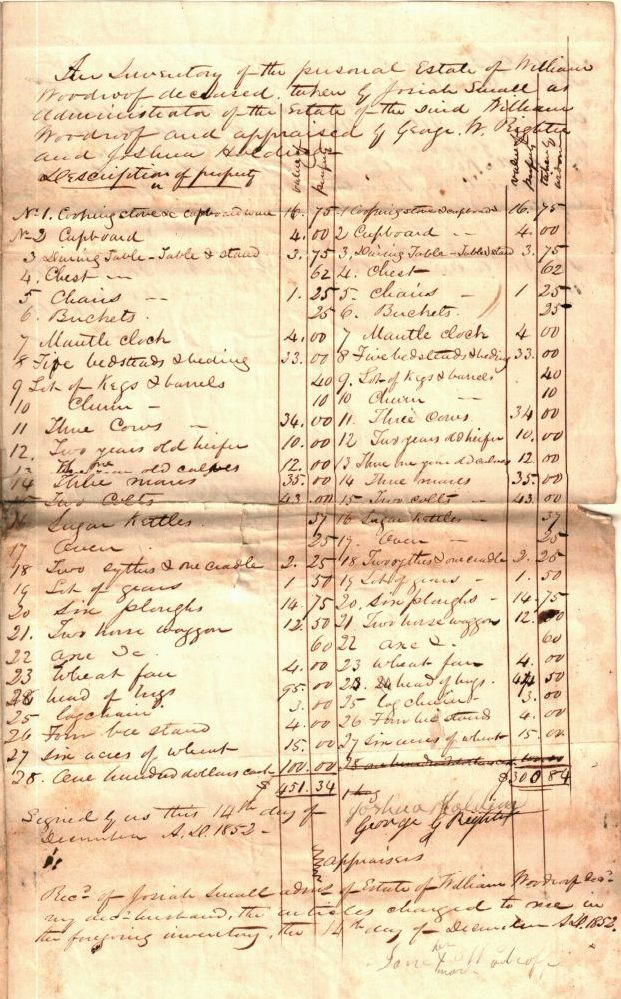 An Inventory of the personal Estate of William
Woodrof deceased, taken by Josiah Small as
administrator of the Estate of the said William
Woodrof and appraised by George W. Righter
and Joshua Holding
Description of property value of property value of property taken by widow
No 1. Cooking stove & cupboard ware 16.75 1 Cooking stove & cupboard 16.75
No 2 Cupboard 4.00 2 Cupboard 4.00
3 Dining Table - Table & stand 3.75 3, Dining Table - Table & stand 3.75
4. Chest 62 4. Chest 62
5 Chairs 1.25 5- Chairs 1 25
6. Buckets. 25 6. Buckets 25
7 Mantle clock 4.00 7 Mantle clock 4 00
8 Five bedsteads & beding 33.00 8 Five bedsteads & beding 33.00
9 Lot of Kegs & barrels 40 9. Lot of Kegs & barrels 40
10 Churn - 10 10 Churn - 10
11 Three Cows - 34.00 11. Three Cows 34 00
12. Two years old heifer 10.00 12 Two years old heifer 10.00
13 Three one year old calves 12.00 13 Three one year old calves 12 00
14 Three mares 35.00 14 Three mares 35.00
15 Two Colts 43.00 15 Two colts - 43.00
16 Sugar Kettles. 37 16 Sugar Kettles 37
17. Oven 25 17. Oven - 25
18 Two sythes & one cradle 2.25 18 Two sythes & one cradle 2.25
19 Lot of gears 1.50 19 Lot of gears - 1.50
20 Six ploughs 14.75 20. Six ploughs - 14.75
21. Two horse waggon 12.50 21 Two horse waggon 12.
22 axe &c 60 22 axe &. 60
23 Wheat fan 4.00 23 Wheat fan 4.00
24 head of hogs 95.00 24 head of hogs. 44 50
25 log chain 3.00 25 log chain 3.00
26 Four bee stand 4.00 26 Four bee stands 4.00
27 Six acres of wheat 15.00 27 Six acres of wheat 15.00
28. One hundred dollars cash 100.00 28
$ 451.34 $300 84
Signed by us this 14th day of Joshua Holding
December A.D. 1852- George G Righter
appraisers
Recd of Josiah Small admr of Estate of William Woodrof decd
my decd husband, the articles charged to me in
the foregoing inventory, the 14th day of December A.D. 1852.
Jane her x mark Woodrof